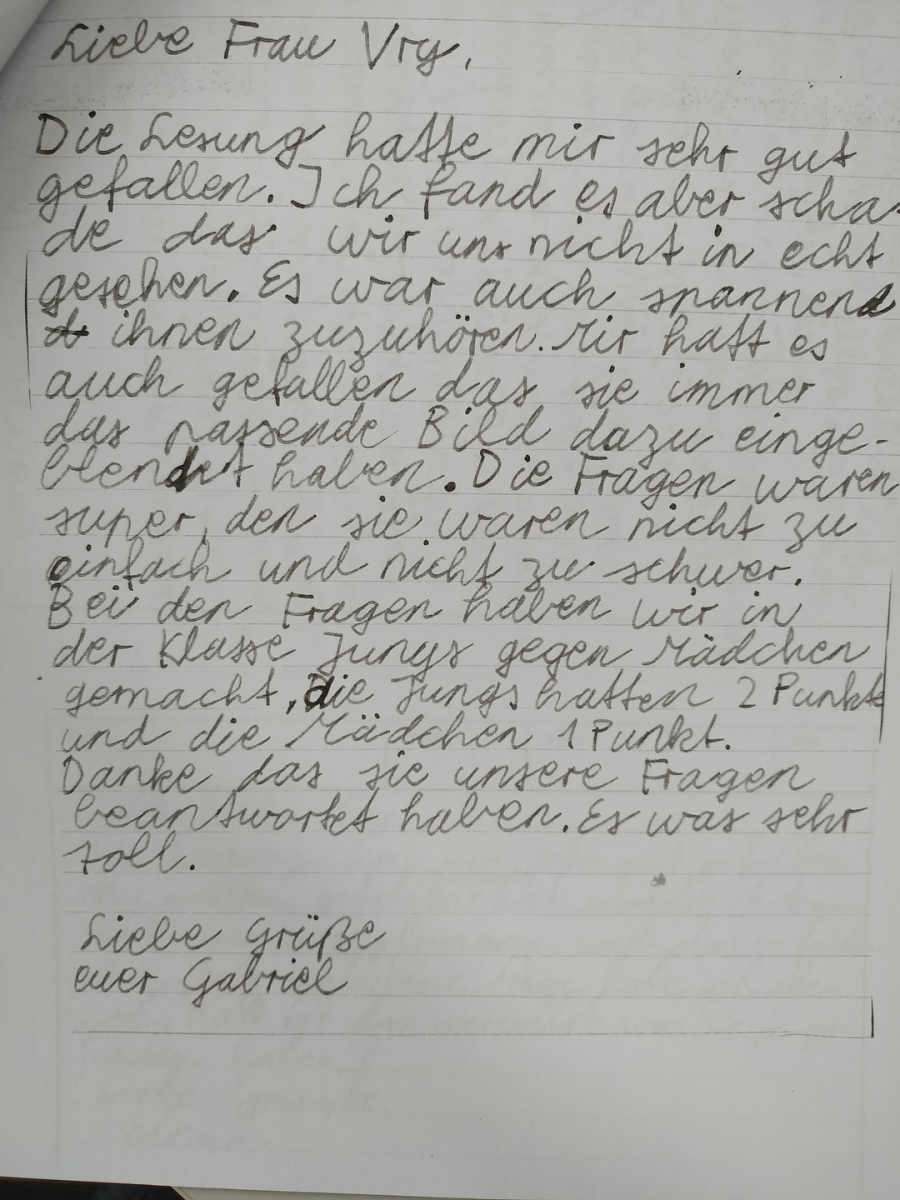 Liebe Frau Vry,
Die Lesung hatte mir sehr gut
gefallen. Ich fand es aber scha-
de das wir uns nicht in echt
gesehen. Es war auch spannend
ihnen zuzuhören. Mir hatt es
auch gefallen das sie immer
das passende Bild dazu einge-
blendet haben. Die Fragen waren
super, den sie waren nicht zu
einfach und nicht zu schwer.
Bei den Fragen haben wir in
der Klasse Jungs gegen Mädchen
gemacht, Die Jungs hatten 2 Punkte
und die Mädchen 1 Punkt.
Danke das sie unsere Fragen
beantwortet haben. Es was sehr
toll.
Liebe Grüße
euer Gabriel